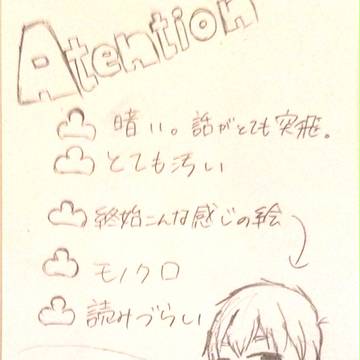 Atention
暗い。話がとても突飛。
とても汚い
終始こんな感じの絵
モノクロ
読みづらい